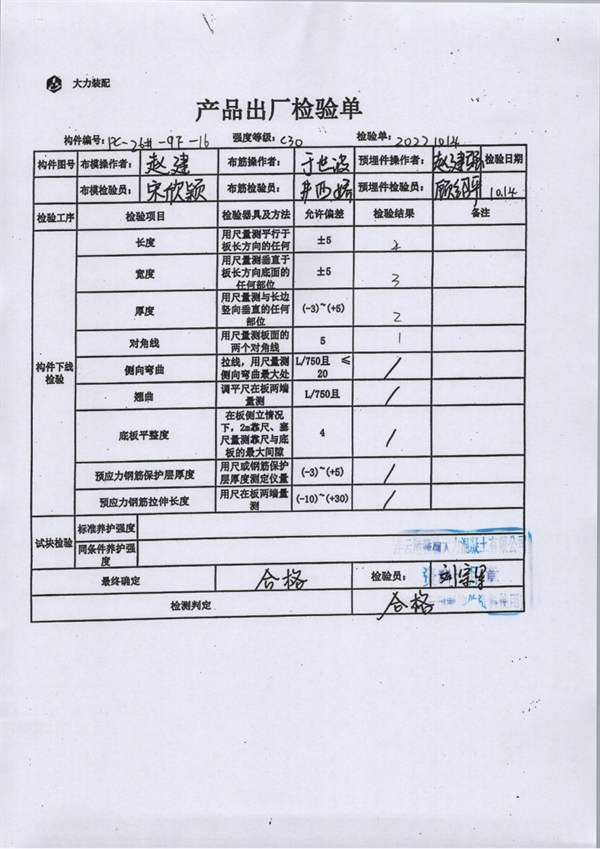 大力装配
产品出厂检验单
构件编号: PC-26#-9F-16 强度等级: C30 检验单: 20221014
构件图号 布模操作者: 赵建 布筋操作者: 于世波 预埋件操作者: 赵建强 检验日期
布模检验员: 宋欣颖 布筋检验员: 预埋件检验员: 10.14
检验工序 检验项目 检验器具及方法 允许偏差 检验结果 备注
构件下线检验
长度 用尺量测平行于板长方向的任何 ±5 2
宽度 用尺量测垂直于板长方向底面的任何部位 ±5 3
厚度 用尺量测与长边竖向垂直的任何部位 (-3)~(+5) 2
对角线 用尺量测板面的两个对角线 5 1
侧向弯曲 拉线，用尺量测侧向弯曲最大处 L/750且 ≤20 /
翘曲 调平尺在板两端量测 L/750且 /
底板平整度 在板侧立情况下，2m靠尺、塞尺量测靠尺与底板的最大间隙 4 /
预应力钢筋保护层厚度 用尺或钢筋保护层厚度测定仪量 (-3)~(+5) /
预应力钢筋拉伸长度 用尺在板两端量测 (-10)~(+30) /
试块检验 标准养护强度
同条件养护强度
最终确定 合格 检验员:
检测判定 合格